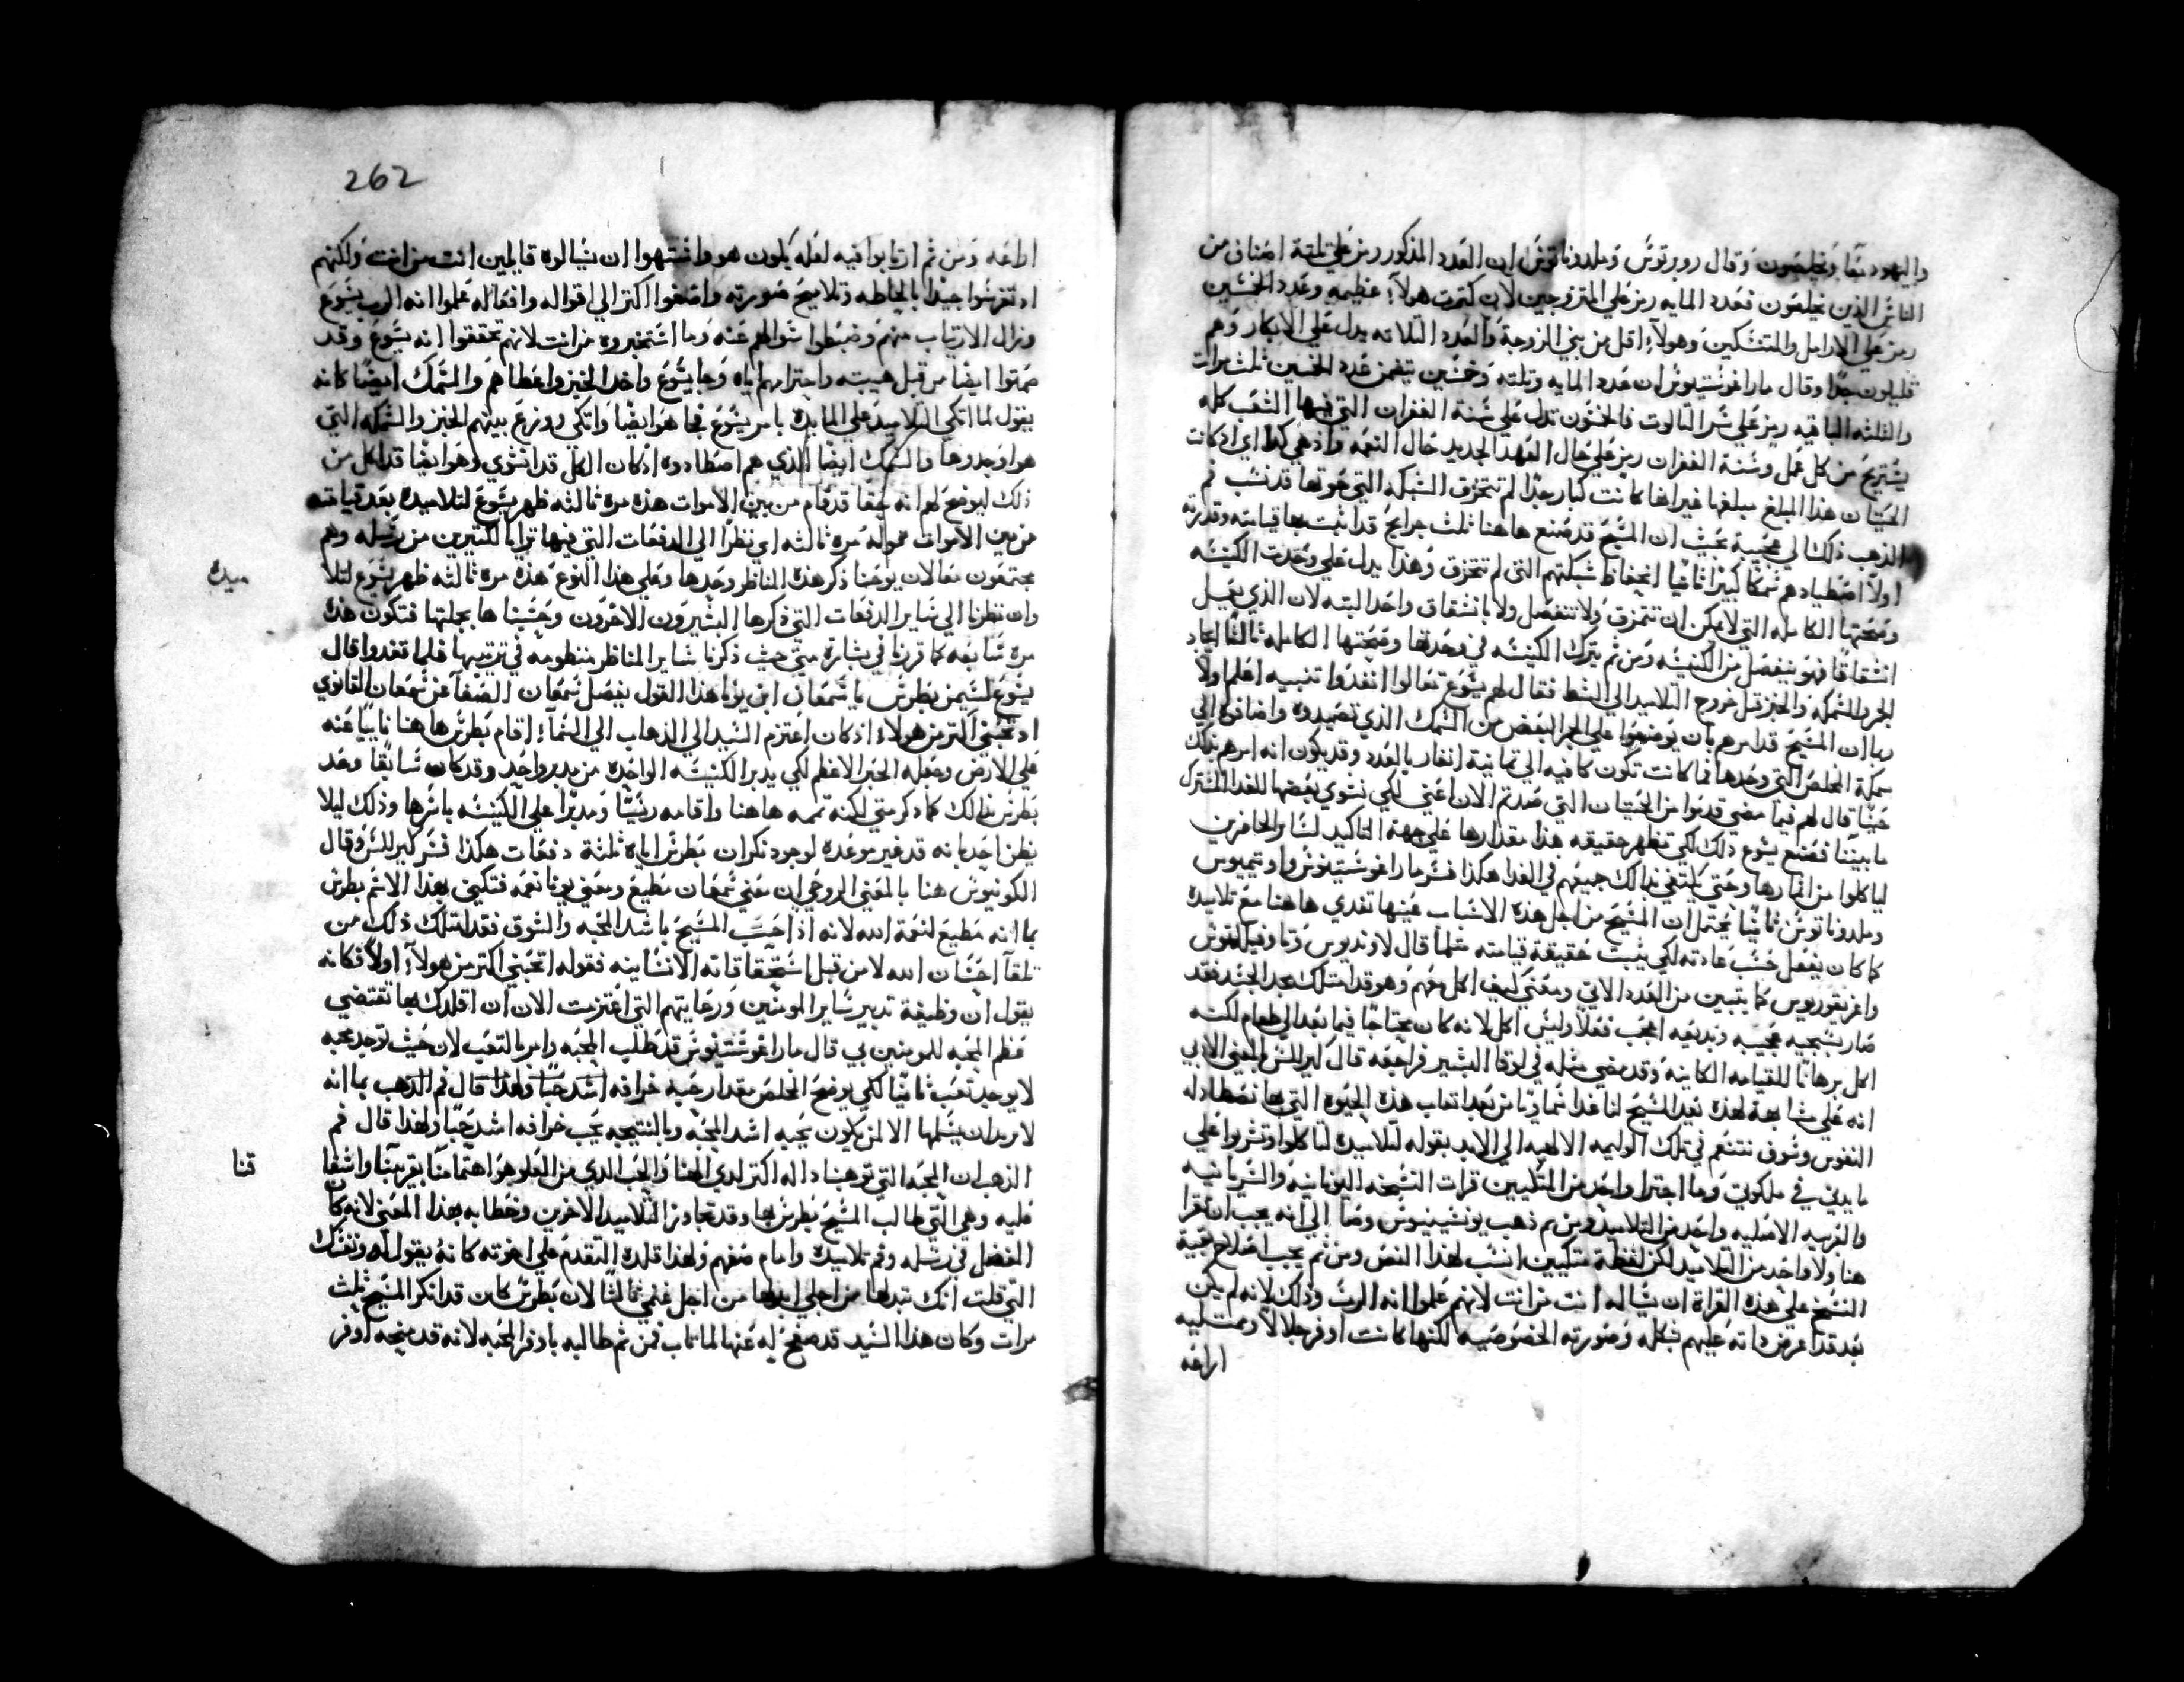 واليهود معًا ويخلصون وقال روبرتوس وملدوناتوس ان العدد المذكور رمز علي ثلثة اصناف من
الناس الذين يخلصون فعدد المايه رمز علي المتزوجين لان كثرت هولآء عظيمه وعدد الخمسين
رمز علي الارامل والمتنسكين وهولآء اقل من بني الزوجة والعدد الثلاثه يدل علي الابكار وهم
قليلون جدًا وقال مار اغوستينوس ان عدد المايه وثلثه وخمسين يتضمن عدد الخمسين ثلث مرات
والثلثه الباقيه رمز علي سر الثالوت فالخمسون تدل علي سنة الغفران التي فيها الشعب كله
يستريح من كل عمل وسنة الغفران رمز علي حال العهد الجديد حال النعمه واذ هي كذا اي اذ كانت
الحيتان هذا المبلغ مبلغها غير انها كانت كبار جدًا لم تتخزق الشبكه التي حوتها قد نسب فم
الذهب ذلك الي عجيبة بحيث ان المسيح قد صنع هاهنا ثلث جرايح قد اثبت بها قيامته وقدرته
اولًا اصطيادهم سمكًا كبيرًا ثانيًا انحفاظ شبكتهم التي لم تتخزق وهذا يدل علي وحدت الكنيسه
وصحتها الكامله التي لا يمكن ان تتمزق ولا تنفصل ولا بانشقاق واحد البته لان الذي يفعل
انشقاقًا فهو ينفصل من الكنيسه ومن ثم يترك الكنيسه في وحدتها وصحتها الكامله ثالثًا ايجاد
الجر والسمكه والخبز قبل خروج التلاميد الي الشط فقال لهم يسوع تعالوا اتغدوا تنبيه اعلم اولًا
ربما ان المسيح قد امرهم بان يوضعوا علي الجر البعض من السمك الذي تصيدوه واضافوه الي
سمكة المخلص التي وحدها فما كانت تكون كافيه الي ثمانية انفار بالعدد وقد يكون انه امرهم بذلك
حينًا قال لهم فيما مضي قدموا من الحيتان التي صدتم الان اعني لكي نشوي بعضها للغدا المشترك
ما بيننا فصنع يسوع ذلك لكي تظهر حقيقه هذا مقدارها علي جهة التاكيد لساير الحاضرين
لياكلوا من اثمارها وحتي يكتفي بذالك جميعهم في الغدا هكذا فسر مار اغوستينوس واوتيميوس
وملدوناتوس ثانيًا يحتمل ان المسيح من اجل هذه الاسباب عينها تغدي هاهنا مع تلاميده
كما كان يفعل حسب عادته لكي يثبت حقيقة قيامته مثلما قال لاونديوس وتاوفيلكتوس
واغريغوريوس كما يتبين من العدد الاتي ومعني كيف اكل معهم وهو قد امتلك مجد الجسد فقد
صار بشجيه عجيبه وبدعيه اعجب فعلًا وليس اكل لانه كان محتاجًا فيما بعد الي طعام لكنه
اكل برهانًا للقيامه الكاينه وقد مضي مثله في لوقا البشير فراجعه قال كبير للسر بالمعني الادبي
انه علي مشابهة لهذه يعد المسيح لنا غدا سماويًا من بعد اتعاب هذه الحيوه التي بها نصطاد له
النفوس وسوف نتنعم في تلك الوليمه الالهيه الي الابد بقوله لتلاميده لتاكلوا وتشربوا علي
مايدتي في ملكوتي وما اجترا واحد من المتكيين قرات النسخه اليونانيه والسريانيه
والعربيه الاصليه واحد من التلاميد ومن ثم ذهب يونشينيوس وصا الي انه يجب ان يقرا
هنا ولا واحد من التلاميد لكن لفظة متكيين انسب لهذا النص ومن ثم يجب اصلاح بقية
النسخ علي هذه القراة ان يساله انت من انت لانهم علموا انه الرب وذلك لانه لم يكن
بعد قد اعرض ذاته عليهم بشكله وصورته الخصوصيه لكنها كانت اوفر جلالًا وممتليه
اراعه
262
اراعه ومن ثم ارتابوا فيه لعله يكون هو واشتهوا ان يسالوه قايلين انت من انت ولكنهم
اذ تفرسوا جيدًا بالحاظه وتلاميح صورته واصغوا اكثر الي اقواله وافعاله علموا انه الرب يسوع
وزال الارتياب منهم وضبطوا سوالهم عنه وما استخبروه من انت لانهم تحققوا انه يسوع وقد
صمتوا ايضًا من قبل هيبته واحترامهم اياه وجا يسوع واخد الخبز واعطاهم والسمك ايضًا كانه
يقول لما اتكي التلاميد علي المايده بامر يسوع فجا هو ايضًا واتكي ووزع بينهم الخبز والسمكه التي
هو اوجدوها والسمك ايضًا الذي هم اصطادوه اذ كان الكل قد انشوي وهو ايضًا قد اكل من
ذلك ليوضح لهم انه حقًا قد قام من بين الاموات هذه مره ثالثه ظهر يسوع لتلاميده بعد قيامته
من بين الاموات مقوله مره ثالثه اي نظرًا الي الدفعات التي فيها ترايا لكثيرين من رسله وهم
مجتمعون معًا لان يوحنا ذكر هذه المناظر وحدها وعلي هذا النوع هذه مره ثالثه ظهر يسوع لتلا
ميده
وان نظرنا الي ساير الدفعات التي ذكرها البشيرون الاخرون وحسبناها بجملتها فتكون هذه
مره سابعه كما قرزنا في بشارة متي حيث ذكرنا ساير المناظر منظومه في ترتيبها فلما تغدوا قال
يسوع لسيمن بطرس يا سمعان ابن يونا هذا القول يفصل سمعان الصفآ عن سمعان القانوي
اتحبني اكثر من هولاء اذ كان اعتزم السيد الي الذهاب الي السمآء اقام بطرس هاهنا نايبًا عنه
علي الارض وجعله الحبر الاعظم لكي يدبر الكنيسه الواحده من مدبر واحد وقد كان سابقًا وعد
بطرس بذالك كما ذكر متي لكنه تممه هاهنا واقامه رييسًا ومدبرًا علي الكنيسه باسرها وذلك ليلا
يظن احد بانه قد غير موعده لوجود نكران بطرس اياه ثلثة دفعات هكذا فسر كبير للسر وقال
الكونيوس هنا بالمعني الروحي ان معني سمعان مطيع ومعني يونا نعمه فتكني بهذا الاسم بطرس
بما انه مطيع لنعمة الله لانه اذ احب المسيح باشد المحبه والشوق فقد امتلك ذلك من
تلقآ احسان الله لا من قبل استحقاقاته الانسانيه فقوله اتحبني اكتر من هولآء اولًا فكانه
يقول ان وظيفة تدبير ساير المومنين ورعايتهم التي اعتزمت الان ان اقلدك بها تقتضي
عظم المحبه للمومنين بي قال مار اغوستينوس قد طلب المحبه وامر بالتعب لان حيث توجد محبه
لا يوجد تعب ثانيًا لكي يوضح المخلص مقدار رحبة خرافه اشد حبًا ولهذا قال فم الذهب بما انه
لا يريد ان يسلمها الا لمن يكون يحبه اشد المحبه وبالنتيجه يحب خرافه اشد حبًا ولهذا قال فم
الذهب ان المحبه التي توهبنا داله اكثر لدي الهنا والحب الذي من العلو هو اهتمامنا بقريبنا واشفا
قنا
عليه وهي التي طالب المسيح بطرس بها وقد تجاوز التلاميد الاخرين وخطابه بهذا المعني لانه كان
الفضل في رسله وفم تلاميده وامام صفهم ولهذا قلده التقدم علي اخوته كانه يقول له ونفسك
التي قلت انك تبدلها من اجلي ابدلها من اجل غنمي ثالثًا لان بطرس كان قد انكر المسيح ثلث
مرات وكان هذا السيد قد صفح له عنها لما تاب فمن ثم طالبه باوفر المحبه لانه قد منحه اوفر